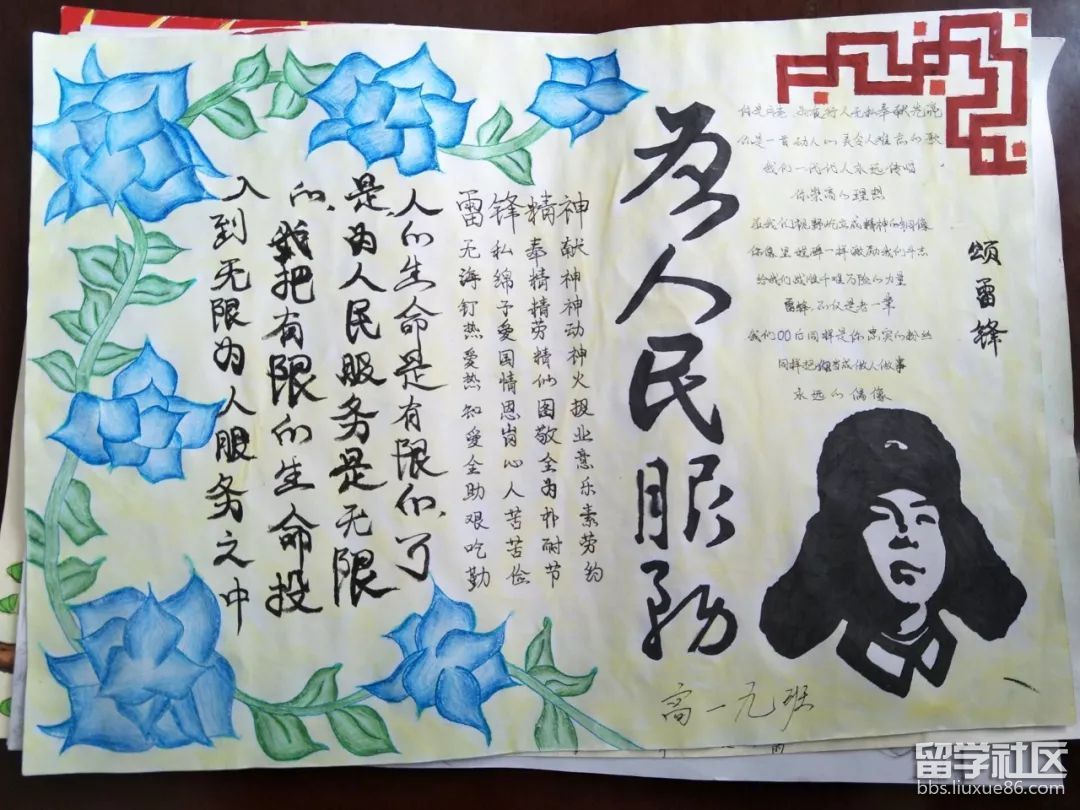 颂雷锋
你是 夜行人无私奉献光亮
你是一首动人的 令人难忘的歌
我们一代代人永远传唱
你崇高的理想
在我们视野屹立成精神的铜像
你像里程碑一样激励我们斗志
给我们战胜千难万险的力量
雷锋,不仅是老一辈
我们00后同样是你忠实的粉丝
同样把你当成做人做事
永远的偶像
为人民服务
雷锋精神
无私奉献
海绵精神
钉子精神
热爱劳动
爱国精神
热情似火
知恩图报
爱岗敬业
全心全意
助人为乐
艰苦朴素
吃苦耐劳
勤俭节约
人的生命是有限的,可
是,为人民服务是无限
的,我把有限的生命投
入到无限为人服务之中
高一九班
留学社区
bbs.liuxue86.com